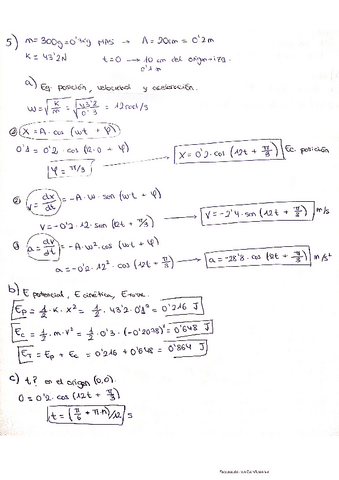 5) m = 300g = 0'3kg MAS → A = 20cm = 0'2m
K = 43'2N t = 0 → 10 cm del origen → izq.
0'1m
a) Eq. posición, velocidad y aceleración.
W = √(K/m) = √(43'2/0'3) = 12 rad/s
X = A · cos (wt + φ)
0'1 = 0'2 · cos (12·0 + φ)
φ = π/3 → X = 0'2 · cos (12t + π/3) Ec. posición
V = dx/dt = -A · w · sen (wt + φ)
V = -0'2 · 12 · sen (12t + π/3) → V = -2'4 · sen (12t + π/3) m/s
a = dv/dt = -A · w² · cos (wt + φ)
a = -0'2 · 12² · cos (12t + π/3) → a = -28'8 · cos (12t + π/3) m/s²
b) E potencial, E cinética, E
Ep = 1/2 · K · X² = 1/2 · 43'2 · 0'1² = 0'216 J
Ec = 1/2 · m · V² = 1/2 · 0'3 · (-2'078)² = 0'648 J
ET = Ep + Ec = 0'216 + 0'648 = 0'864 J
c) t? en el origen (0,0).
0 = 0'2 · cos (12t + π/3)
t = (π/6 + π·n)/12 s